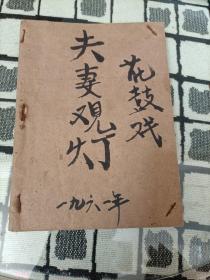 花鼓戏
夫妻观灯
一九六一年